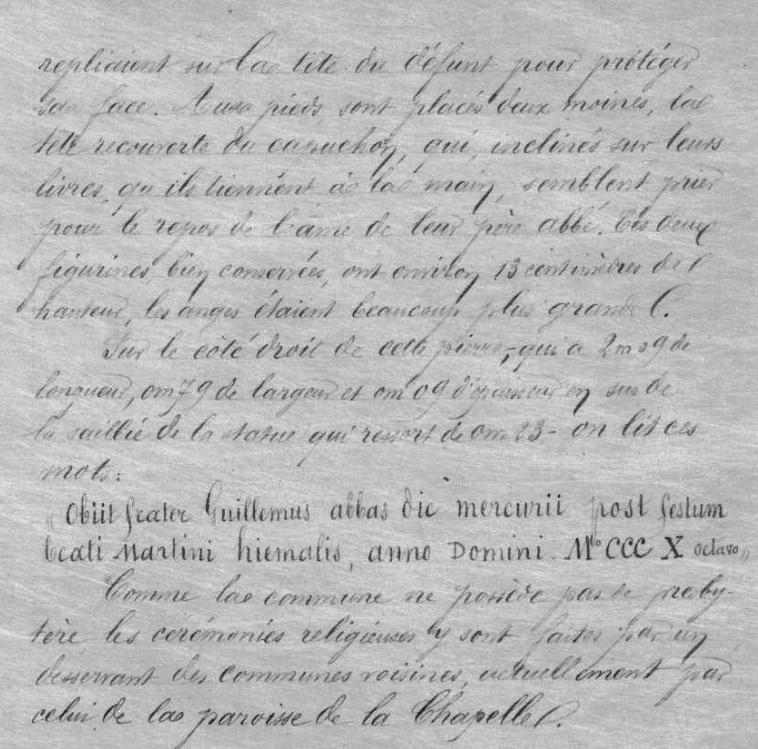 repliaient sur la tête du défunt pour protéger
sa face. Aux pieds, sont placés deux moines, la
tête recouverte du capuchon, qui, inclinés sur leurs
livres, qu'ils tiennent à la main, semblent prier
pour le repos de l'âme de leur père abbé. Ces deux
figurines, bien conservées, ont environ 13 centimètres de
hauteur, les anges étaient beaucoup plus grands.
Sur le côté droit de cette pierre, qui a 2m09 de
longueur, 0m79 de largeur et 0m09 d'épaisseur en sus de
la saillie de la statue qui ressort de 0m23 - on lit ces
mots:
"Obiit frater Guillemus abbas die mercurii post festum
beati Martini hiemalis, anno Domini. M° CCC X octavo"
Comme la commune ne possède pas de presby-
tère les cérémonies religieuses y sont faites par un
desservant des communes voisines, actuellement par
celui de la paroisse de la Chapelle.